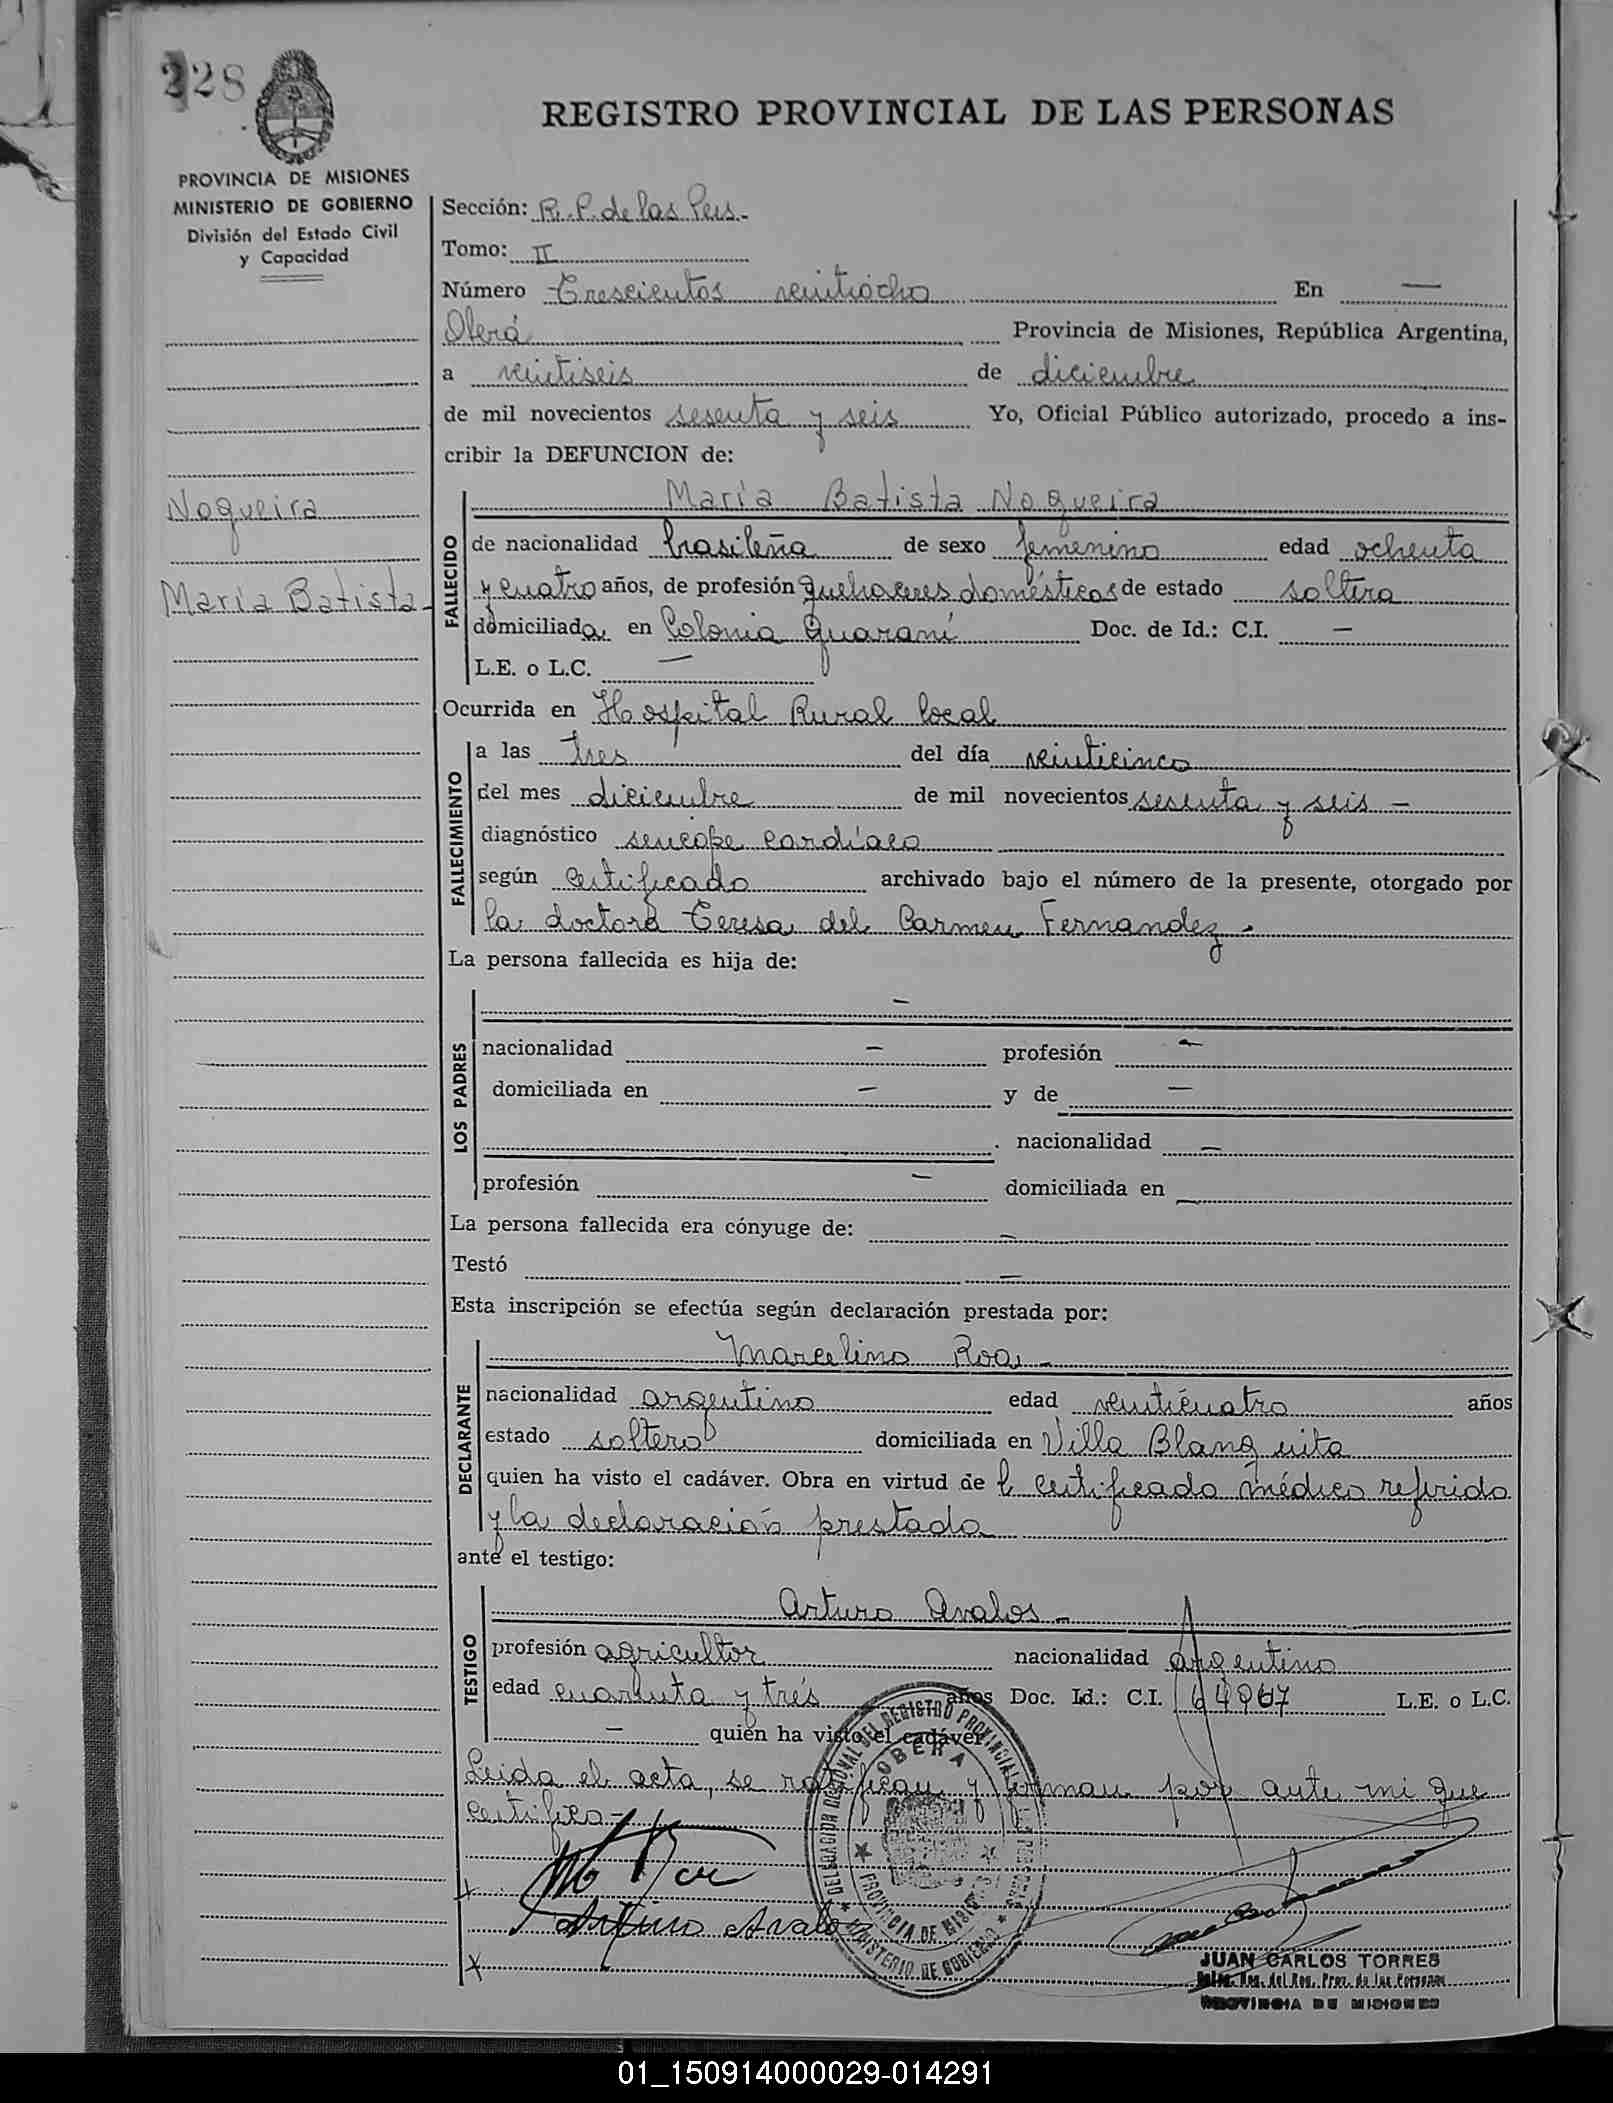 228
REGISTRO PROVINCIAL DE LAS PERSONAS
PROVINCIA DE MISIONES
MINISTERIO DE GOBIERNO
División del Estado Civil
y Capacidad
Sección: R. P. de las Pers.-
Tomo: II
Número Trescientos veintiocho En —
Oberá Provincia de Misiones, República Argentina,
a veintiseis de diciembre
de mil novecientos sesenta y seis Yo, Oficial Público autorizado, procedo a ins-
cribir la DEFUNCION de:
Nogueira
María Batista-
FALLECIDO
María Batista Nogueira
de nacionalidad brasileña de sexo femenino edad ochenta
y cuatro años, de profesión quehaceres domésticos de estado soltera
domiciliada en Colonia Guaraní Doc. de Id.: C.I. —
L.E. o L.C. —
Ocurrida en Hospital Rural local
FALLECIMIENTO
a las tres del día veinticinco
del mes diciembre de mil novecientos sesenta y seis —
diagnóstico sencope cardíaco
según certificado archivado bajo el número de la presente, otorgado por
la doctora Teresa del Carmen Fernandez.
La persona fallecida es hija de:
LOS PADRES
—
nacionalidad — profesión —
domiciliada en — y de —
. nacionalidad —
profesión — domiciliada en
La persona fallecida era cónyuge de: —
Testó —
Esta inscripción se efectúa según declaración prestada por:
DECLARANTE
Marcelino Roa -
nacionalidad argentino edad veinticuatro años
estado soltero domiciliada en Villa Blanquita
quien ha visto el cadáver. Obra en virtud de l certificado médico referido
y la declaración prestada
ante el testigo:
TESTIGO
Arturo Avalos -
profesión agricultor nacionalidad argentino
edad cuarenta y trés años Doc. Id.: C.I. 64967 L.E. o L.C.
— quien ha visto el cadáver
Leida el acta, se ratifican y firman por ante mi que
certifico-
Arturo Avalos
DELEGACION REGIONAL DEL REGISTRO PROVINCIAL DE LAS PERSONAS
OBERA
PROVINCIA DE MISIONES
MINISTERIO DE GOBIERNO
JUAN CARLOS TORRES
del Reg. Prov. de las Personas
PROVINCIA DE MISIONES
01_150914000029-014291